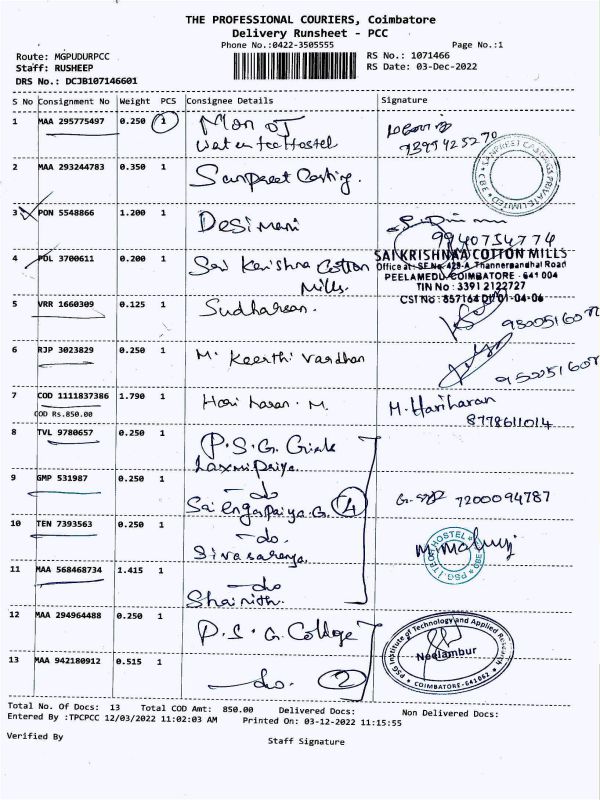 THE PROFESSIONAL COURIERS, Coimbatore
Delivery Runsheet - PCC
Phone No.:0422-3505555 Page No.:1
Route: MGPUDURPCC RS No.: 1071466
Staff: RUSHEEP RS Date: 03-Dec-2022
DRS No.: DCJB107146601
S No Consignment No Weight PCS Consignee Details Signature
1 MAA 295775497 0.250 1 Manoj
Hostel
2 MAA 293244783 0.350 1 Sanpreet Casting.
SANPREET CASTINGS PRIVATE LIMITED
3 PON 5548866 1.200 1 Desimani
9940754774
4 POL 3700611 0.200 1 Sri Krishna Cotton
Mills.
SAI KRISHNAA COTTON MILLS
Office at: SF No 429-A, Thannerpandhal Road
PEELAMEDU COIMBATORE - 641 004
TIN No : 3391 2122727
CST No : 857164 Dt/01-04-06
5 VRR 1660309 0.125 1 Sudharsan.
6 RJP 3023829 0.250 1 M. Keerthi Vardhan
7 COD 1111837386 1.790 1 Hari haran. M. M. Hariharan
COD Rs.850.00 8778611014
8 TVL 9780657 0.250 1 P.S.G. Girls
Laxmi priya.
9 GMP 531987 0.250 1 -do
Sai Engapriya. G. 4 7200094787
10 TEN 7393563 0.250 1 -do.
Sivasaranya.
11 MAA 568468734 1.415 1 -do
12 MAA 294964488 0.250 1 P.S.G. College
PSG Institute of Technology and Applied Research
Neelambur
COIMBATORE-641062
13 MAA 942180912 0.515 1 -do. 2
Total No. Of Docs: 13 Total COD Amt: 850.00 Delivered Docs: Non Delivered Docs:
Entered By :TPCPCC 12/03/2022 11:02:03 AM Printed On: 03-12-2022 11:15:55
Verified By Staff Signature